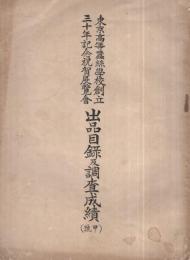 東京高等蠶絲學校創立
三十年記念祝賀展覽會
出品目録及調査成績
(甲號)